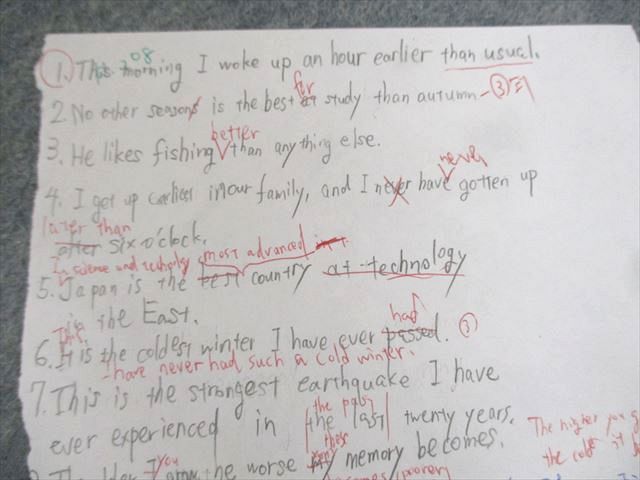 08
1. This morning I woke up an hour earlier than usual.
for
2. No other seasons is the best at study than autumn - ③
better
3. He likes fishing than anything else.
never
4. I get up earliest in our family, and I never have gotten up
later than
after six o'clock.
In science and technology most advanced
5. Japan is the best country at technology
in the East.
This had
6. It is the coldest winter I have ever passed.
have never had such a cold winter.
7. This is the strongest earthquake I have
the past
ever experienced in the last twenty years.
The higher you
you the
the worse my memory becomes.
the it